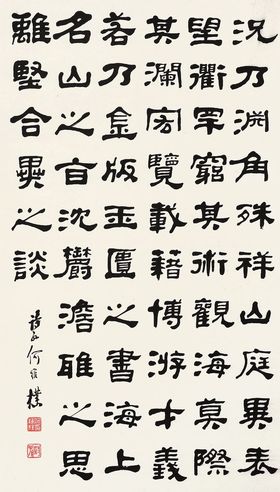 況乃淵角殊祥山庭異表
望衢罕窮其術觀海莫際
其瀾宏覽載藉博游才義
若乃金版玉匱之書海上
名山之旨沈鬱澹雅之思
離堅合異之談
詩孫何維樸